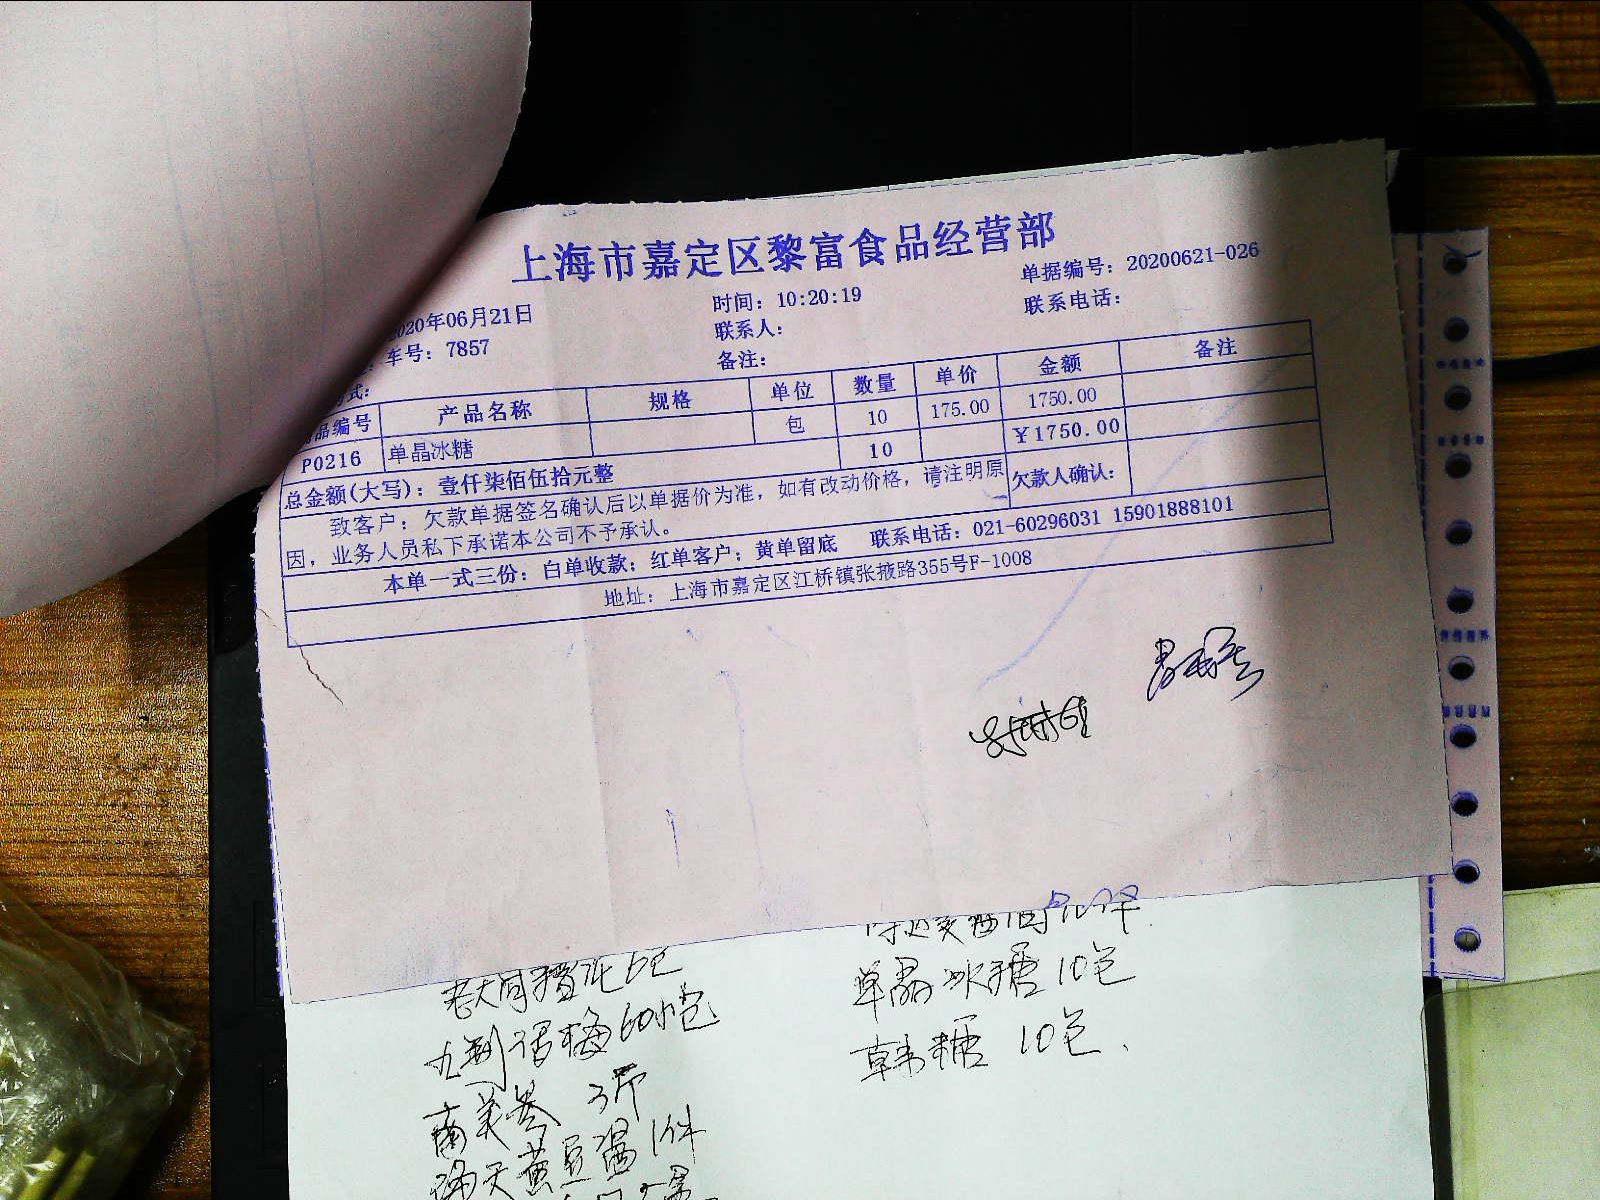 上海市嘉定区黎富食品经营部
单据编号：20200621-026
2020年06月21日 时间：10:20:19 联系电话：
车号：7857 联系人：
式： 备注：
品编号 产品名称 规格 单位 数量 单价 金额 备注
P0216 单晶冰糖 包 10 175.00 1750.00
10 ¥1750.00
总金额(大写)：壹仟柒佰伍拾元整
致客户：欠款单据签名确认后以单据价为准，如有改动价格，请注明原 欠款人确认：
因，业务人员私下承诺本公司不予承认。
本单一式三份：白单收款；红单客户；黄单留底 联系电话：021-60296031 15901888101
地址：上海市嘉定区江桥镇张掖路355号F-1008
单晶冰糖 10包
韩糖 10包、
九制话梅 60小包
南美参 3斤
黄豆酱 1件